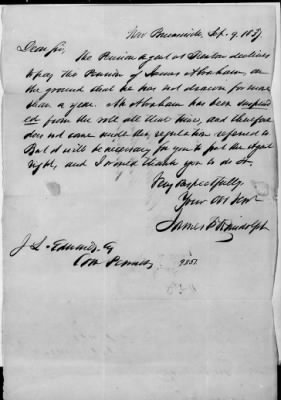 New Brunswick, Sep. 9. 1837
Dear Sir,
The Pension Agent at Trenton declines
to pay the Pension of James Abraham, on
the ground that he has not drawn for more
than a year. Mr Abraham has been suspend
ed from the role all that time, and therefore
does not come under the regulation referred to
But it will be necessary for you to put the Agent
right, and I would thank you to do so.
Very respectfully
Your Obt Servt
James F Randolph
J L. Edwards Esq
Com Pensions